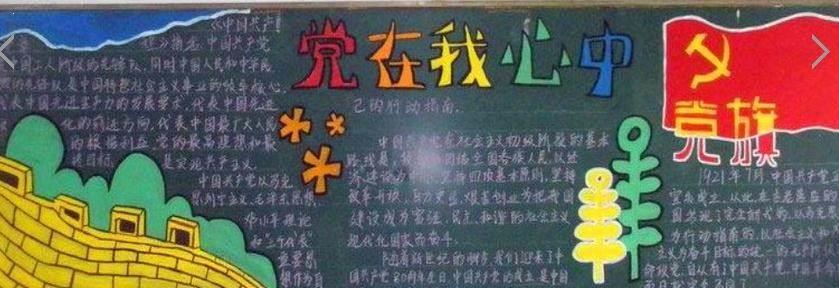 党在我心中
《中国共产
章》指出，中国共产党
中国工人阶级的先锋队，同时中国人民和中华民
的先锋队，是中国特色社会主义事业的领导核心，
代表中国先进生产力的发展要求，代表中国先进
化的前进方向，代表中国最广大人民
的根本利益。党的最高理想和最
终目标，是实现共产主义。
中国共产党以马克
思列宁主义、毛泽东思想
邓小平理论
和“三个代表”
重要思
想作为自
己的行动指南。
中国共产党在社会主义初级阶段的基本
路线是，领导和团结全国各族人民，以经
济建设为中心，坚持四项基本原则，坚持
改革开放，自力更生，艰苦创业，为把我国
建设成为富强、民主、和谐的社会主义
现代化国家而奋斗。
随着新世纪的脚步，我们迎来了中
国共产党80周年生日，中国共产党的成立是中国
党旗
1921年7月，中国共产党
宣告成立，从此，在
国出现了完全新式的，以马克
为行动指南的，以社会主义和
主义为奋斗目标的统一的
命政党，自从有了中国共产党，中国革命